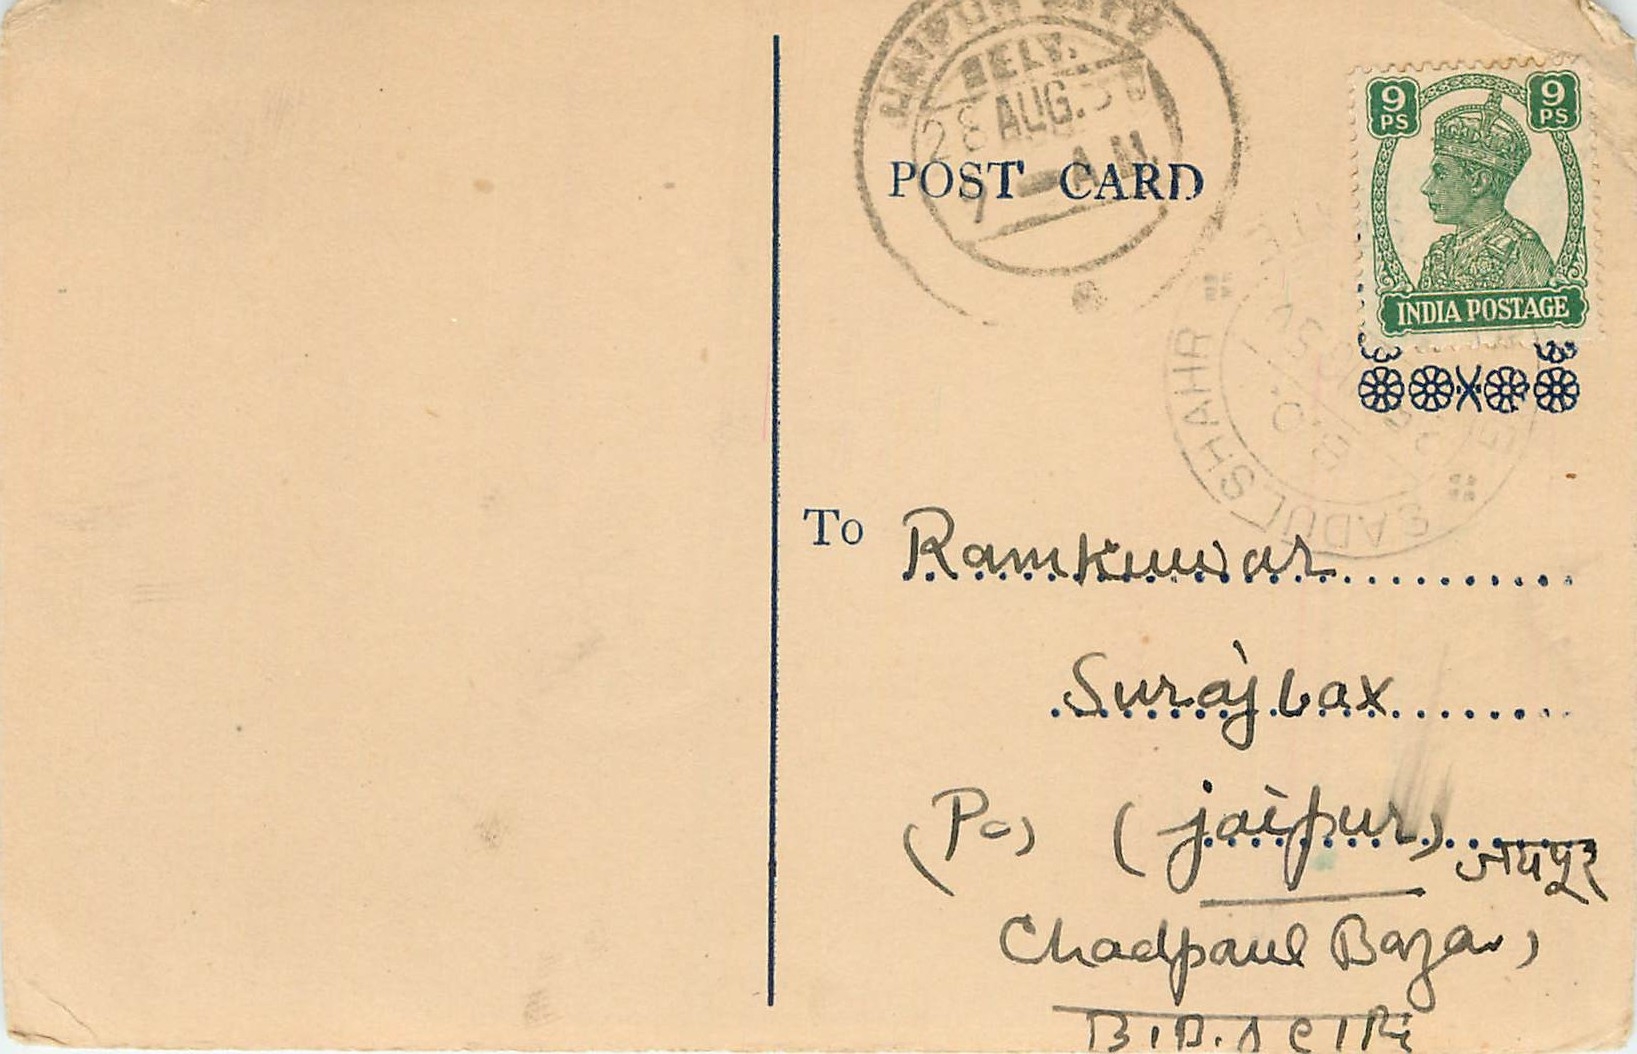 DELY.
28 AUG. 5
7 — A.M.
9 PS 9 PS
INDIA POSTAGE
POST CARD
SADULSHAHR
To Ramkuwar
Surajbax
(Po) (jaipur)
जयपुर
Chadpaul Bazar,